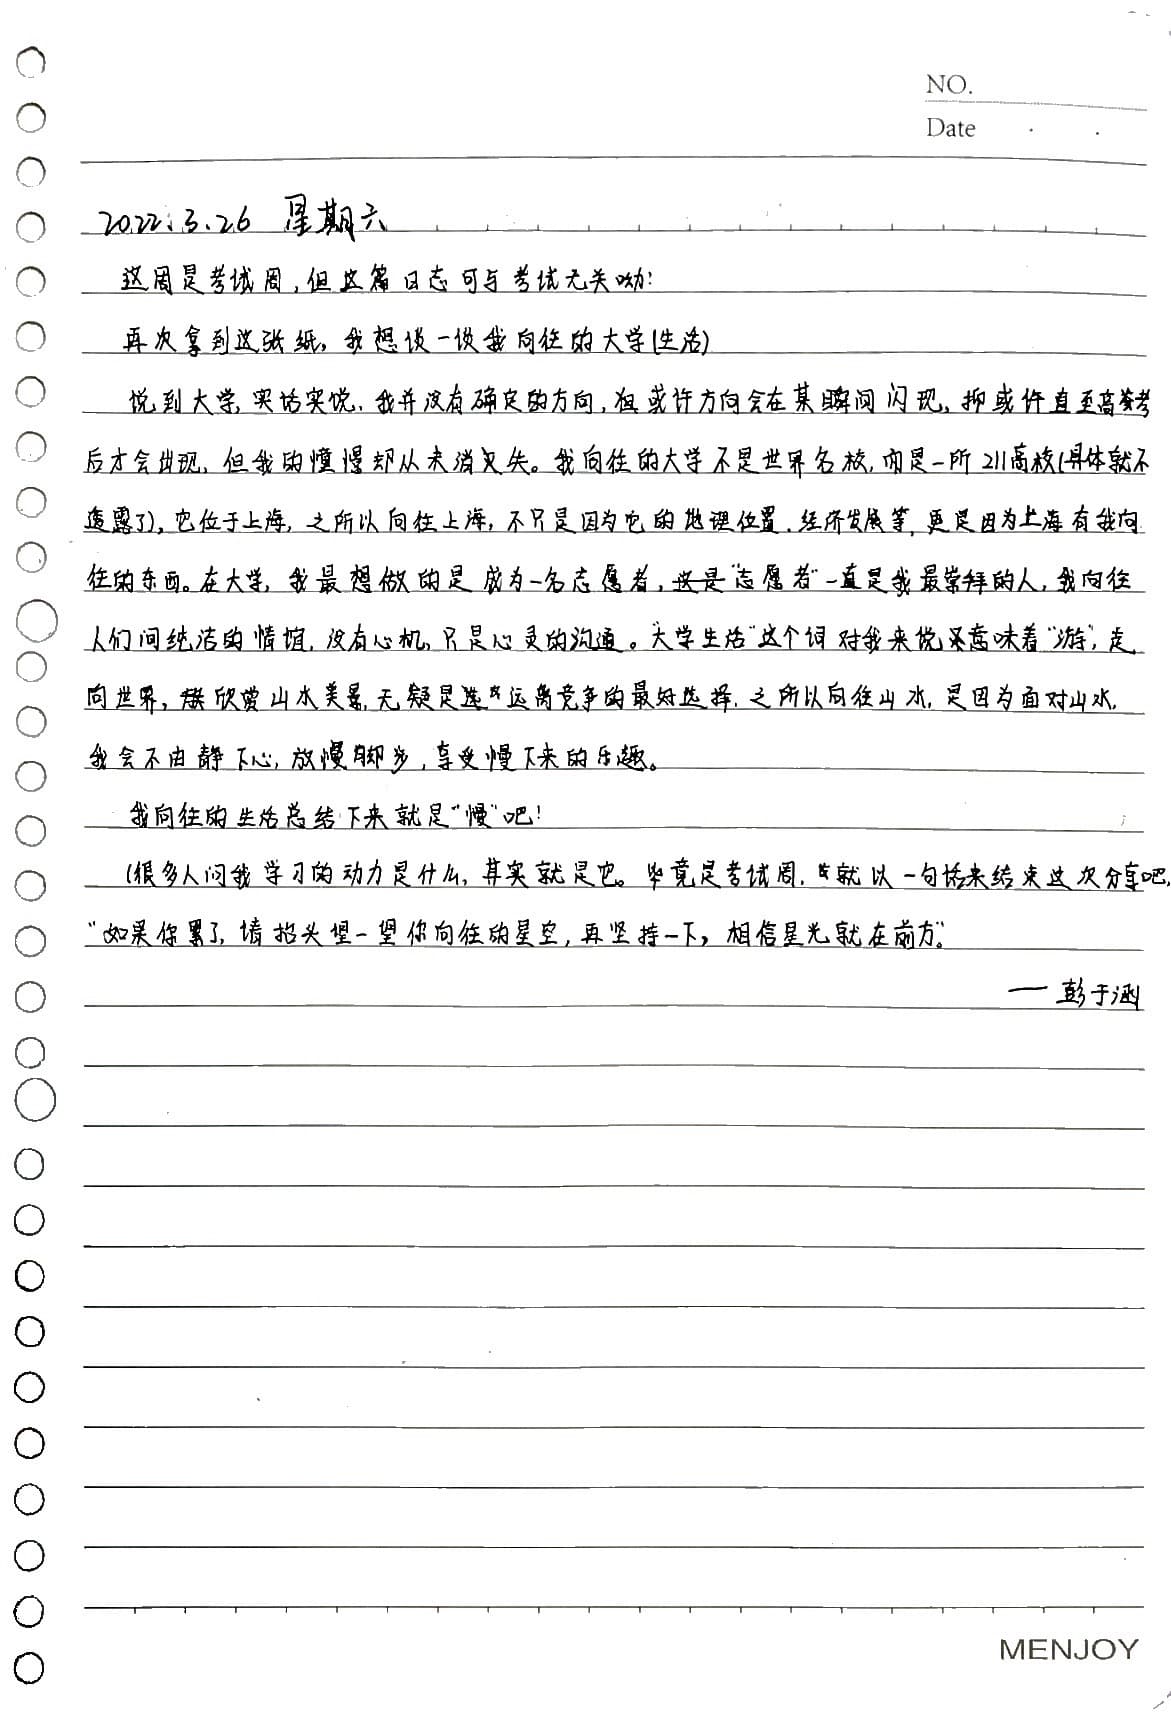 NO.
Date . .
2022.3.26 星期六
这周是考试周,但这篇日志可与考试无关呦!
再次拿到这张纸,我想谈一谈我向往的大学(生活)
说到大学,实话实说,我并没有确定的方向,但或许方向会在某瞬间闪现,抑或许直至高考
后才会出现,但我的憧憬却从未消失。我向往的大学不是世界名校,而是一所211高校(具体就不
透露了),它位于上海,之所以向往上海,不只是因为它的地理位置、经济发展等,更是因为上海有我向
往的东西。在大学,我最想做的是成为一名志愿者,"志愿者"一直是我最崇拜的人,我向往
人们间纯洁的情谊,没有心机,只是心灵的沟通。"大学生活"这个词对我来说还意味着"游",走
向世界,欣赏山水美景,无疑是远离竞争的最好选择,之所以向往山水,是因为面对山水,
我会不由静下心,放慢脚步,享受慢下来的乐趣。
我向往的生活总结下来就是"慢"吧!
(很多人问我学习的动力是什么,其实就是它。毕竟是考试周,就以一句话来结束这次分享吧,
"如果你累了,请抬头望一望你向往的星空,再坚持一下,相信星光就在前方。"
——彭于涵
MENJOY